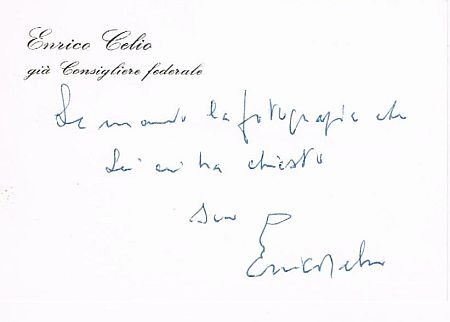 Enrico Celio
già Consigliere federale
Le mando la fotografia che
Lei mi ha chiesto
Suo
Enrico Celio